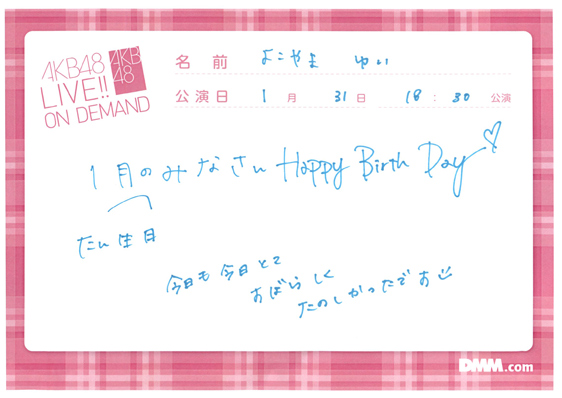 AKB48
LIVE!!
ON DEMAND
AKB
48
名前 よこやま ゆい
公演日 1月 31日 18:30 公演
1月のみなさん Happy Birth Day♡
たん生日
今日も今日とて
すばらしく
たのしかったです
DMM.com